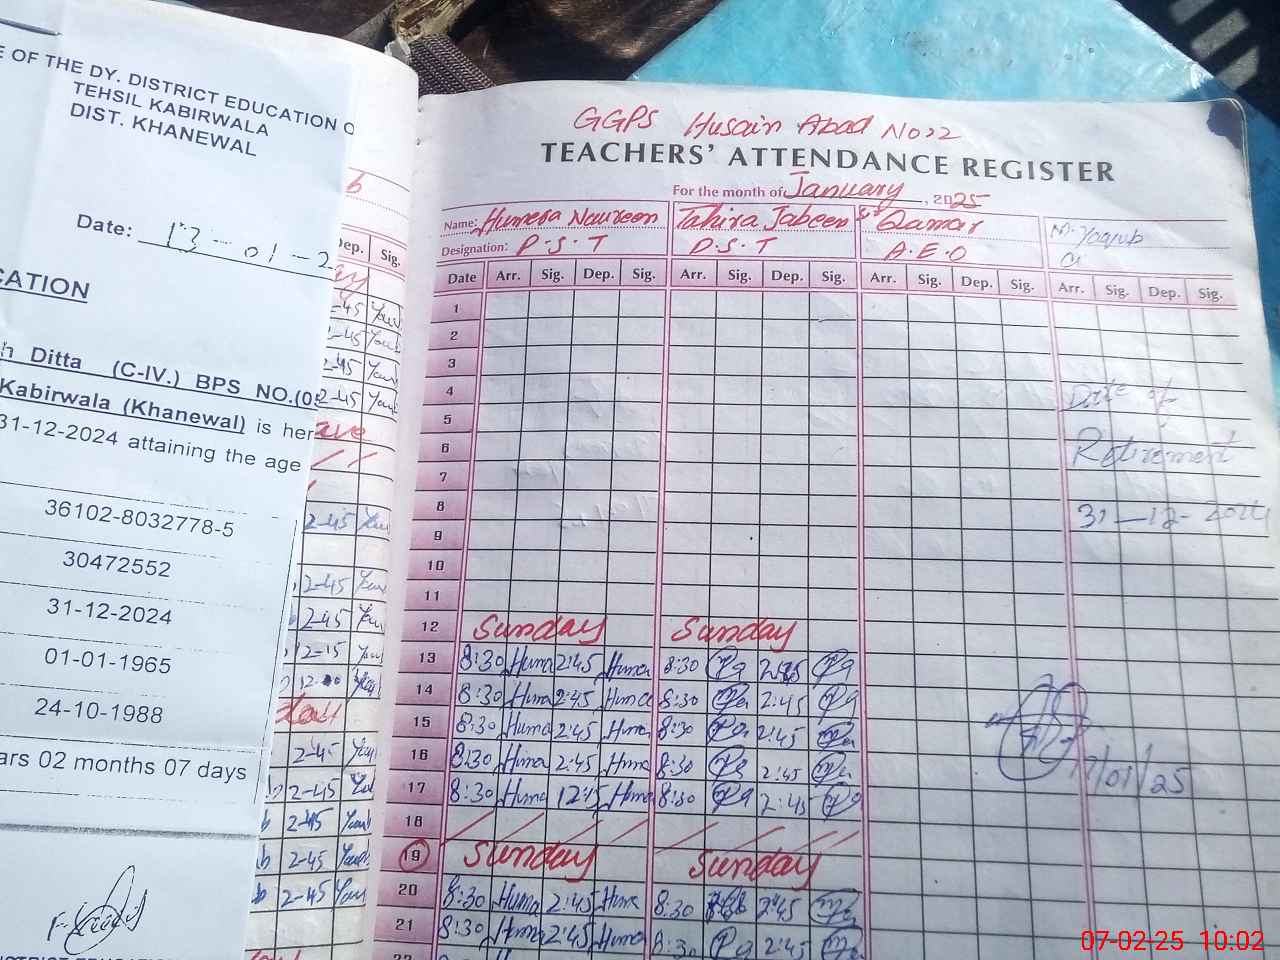 E OF THE DY. DISTRICT EDUCATION O
TEHSIL KABIRWALA
DIST. KHANEWAL
Date: 13-01-2
CATION
h Ditta (C-IV.) BPS NO.(0
Kabirwala (Khanewal) is her
31-12-2024 attaining the age
36102-8032778-5
30472552
31-12-2024
01-01-1965
24-10-1988
ars 02 months 07 days
Dep. Sig.
2-45
2-45
2-45
2-45
2-45
2-45
2-45
2-15
2-45
2-45
2-45
2-45
2-45
GGPS Husain Abad No 22
TEACHERS' ATTENDANCE REGISTER
For the month of January, 2025
Name: Humera Naureen Tahira Jabeen Qamar M. Yaqub
Designation: P.S.T P.S.T A.E.O
Date Arr. Sig. Dep. Sig. Arr. Sig. Dep. Sig. Arr. Sig. Dep. Sig. Arr. Sig. Dep. Sig.
1
2
3
4 Date of
5
6 Retirement
7
8 31-12-2024
9
10
11
12 Sunday Sunday
13 8:30 Huma 2:45 Huma 8:30 2:45
14 8:30 Huma 2:45 Huma 8:30 2:45
15 8:30 Huma 2:45 Huma 8:30 2:45
16 8:30 Huma 2:45 Huma 8:30 2:45
17 8:30 Huma 12:15 Huma 8:30 2:45
/01/25
18
19 Sunday Sunday
20 8:30 Huma 2:45 Huma 8:30 2:45
21 8:30 Huma 2:45 Huma 8:30 2:45
22
07-02-25 10:02